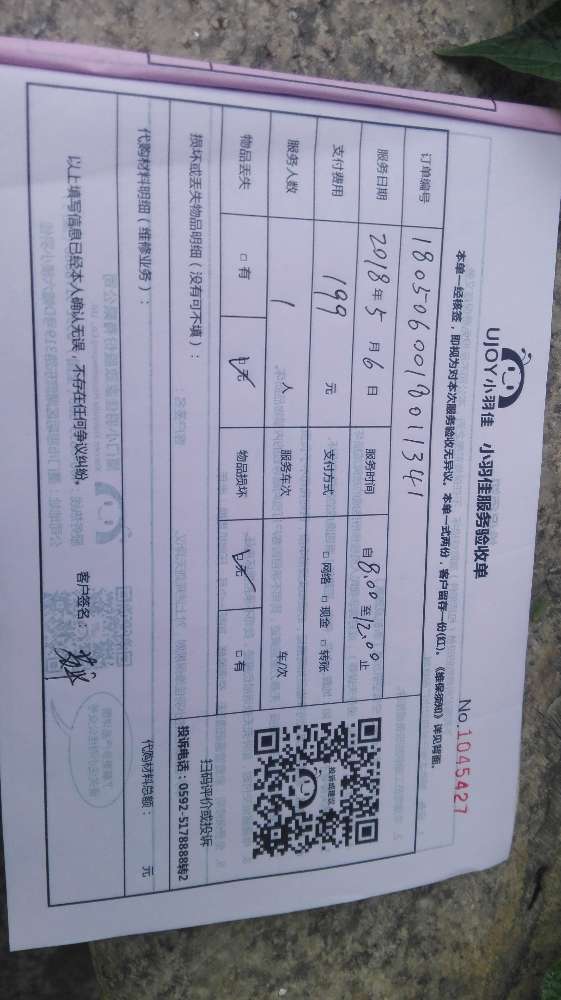 UJOY小羽佳 小羽佳服务验收单
No.1045427
本单一经核签，即视为对本次服务验收无异议。本单一式两份，客户留存一份(红)。《维保须知》详见背面。
订单编号 1805060018011341
服务日期 2018年5月6日 服务时间 自8:00至12:00止
支付费用 199元 支付方式 □网络 □现金 □转账
服务人数 1人 服务车次 车/次
物品丢失 □有 □无 物品损坏 □无 □有
投诉或建议
扫码评价或投诉
投诉电话：0592-5178888转2
损坏或丢失物品明细（没有可不填）：
代购材料明细（维修业务）：
代购材料总额： 元
以上填写信息已经本人确认无误，不存在任何争议纠纷。 客户签名：